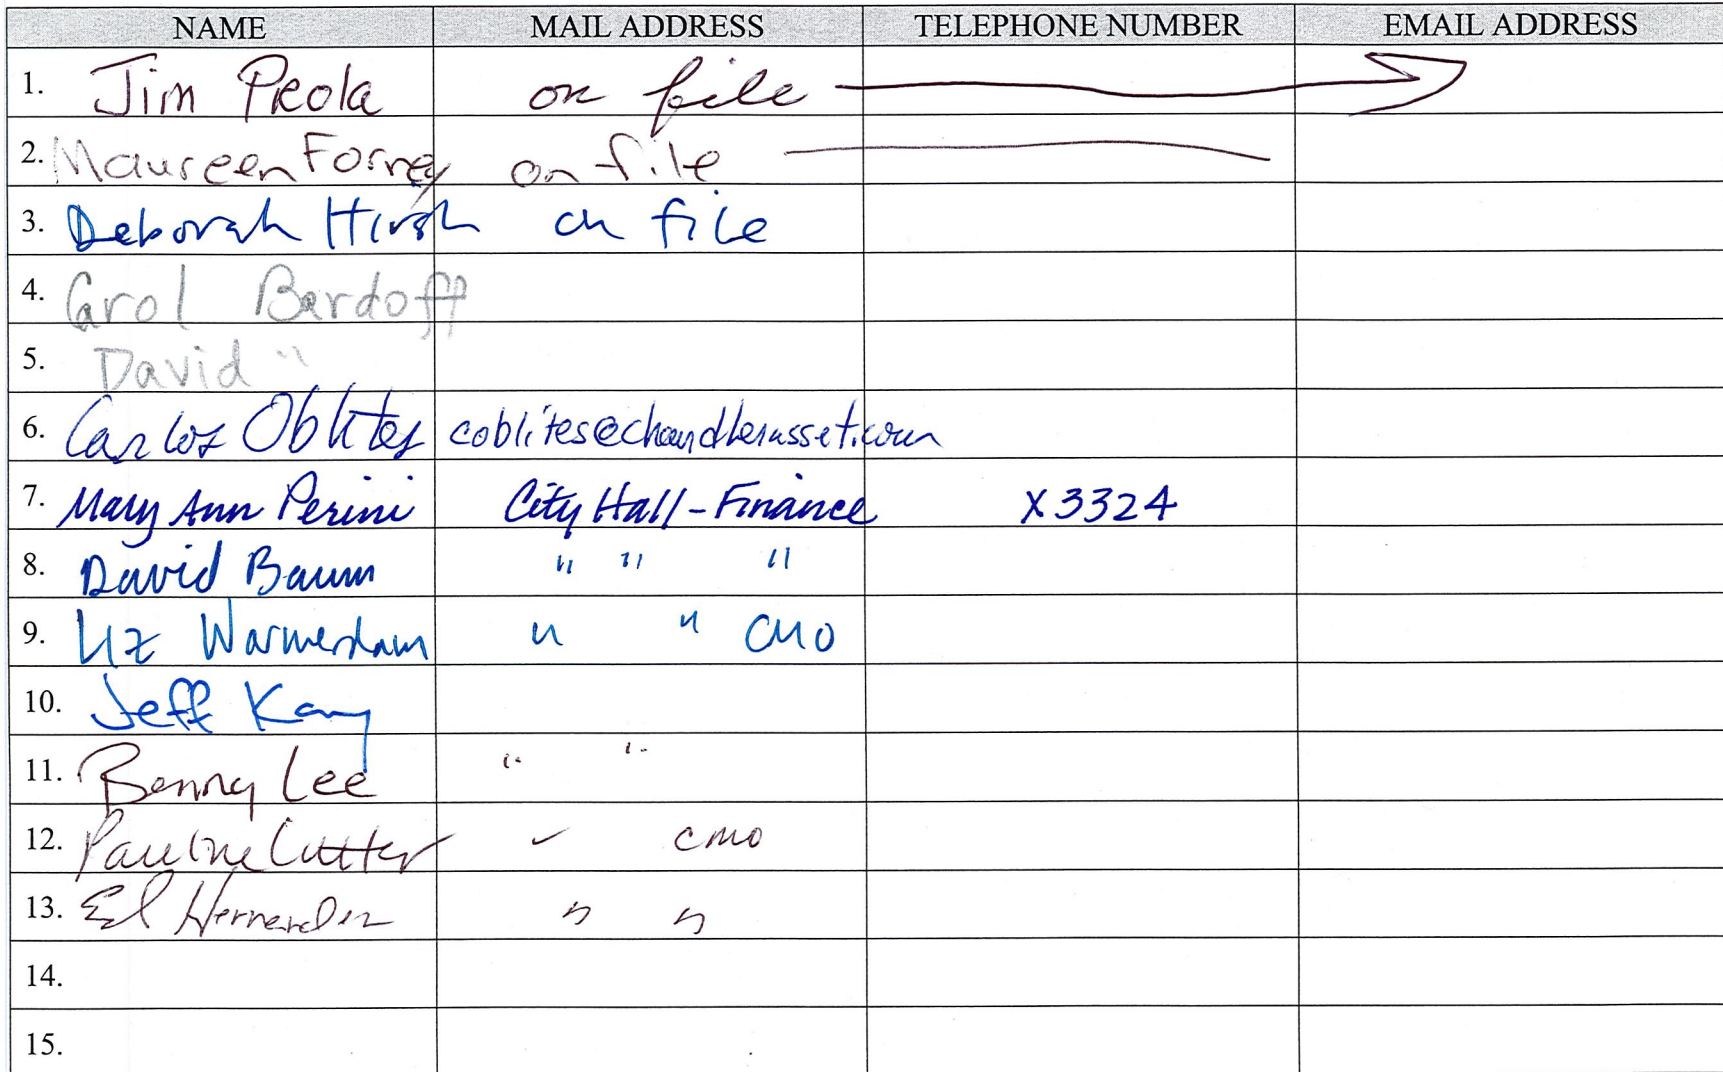 NAME MAIL ADDRESS TELEPHONE NUMBER EMAIL ADDRESS
1. Jim Prola on file
2. Maureen Forney on file
3. Deborah Hirsh on file
4. Carol Bardoff
5. David "
6. Carlos Oblites coblites@chandlerasset.com
7. Mary Ann Perini City Hall - Finance X3324
8. David Baum " " "
9. Liz Warmerdam " " CMO
10. Jeff Kay
11. Benny Lee " "
12. Pauline Cutter CMO
13. Ed Hernandez " "
14.
15.